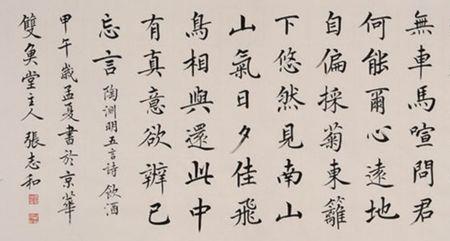 無車馬喧問君
何能爾心遠地
自偏採菊東籬
下悠然見南山
山氣日夕佳飛
鳥相與還此中
有真意欲辨已
忘言 陶淵明五言詩飲酒
甲午歲孟夏書於京華
雙魚堂主人 張志和